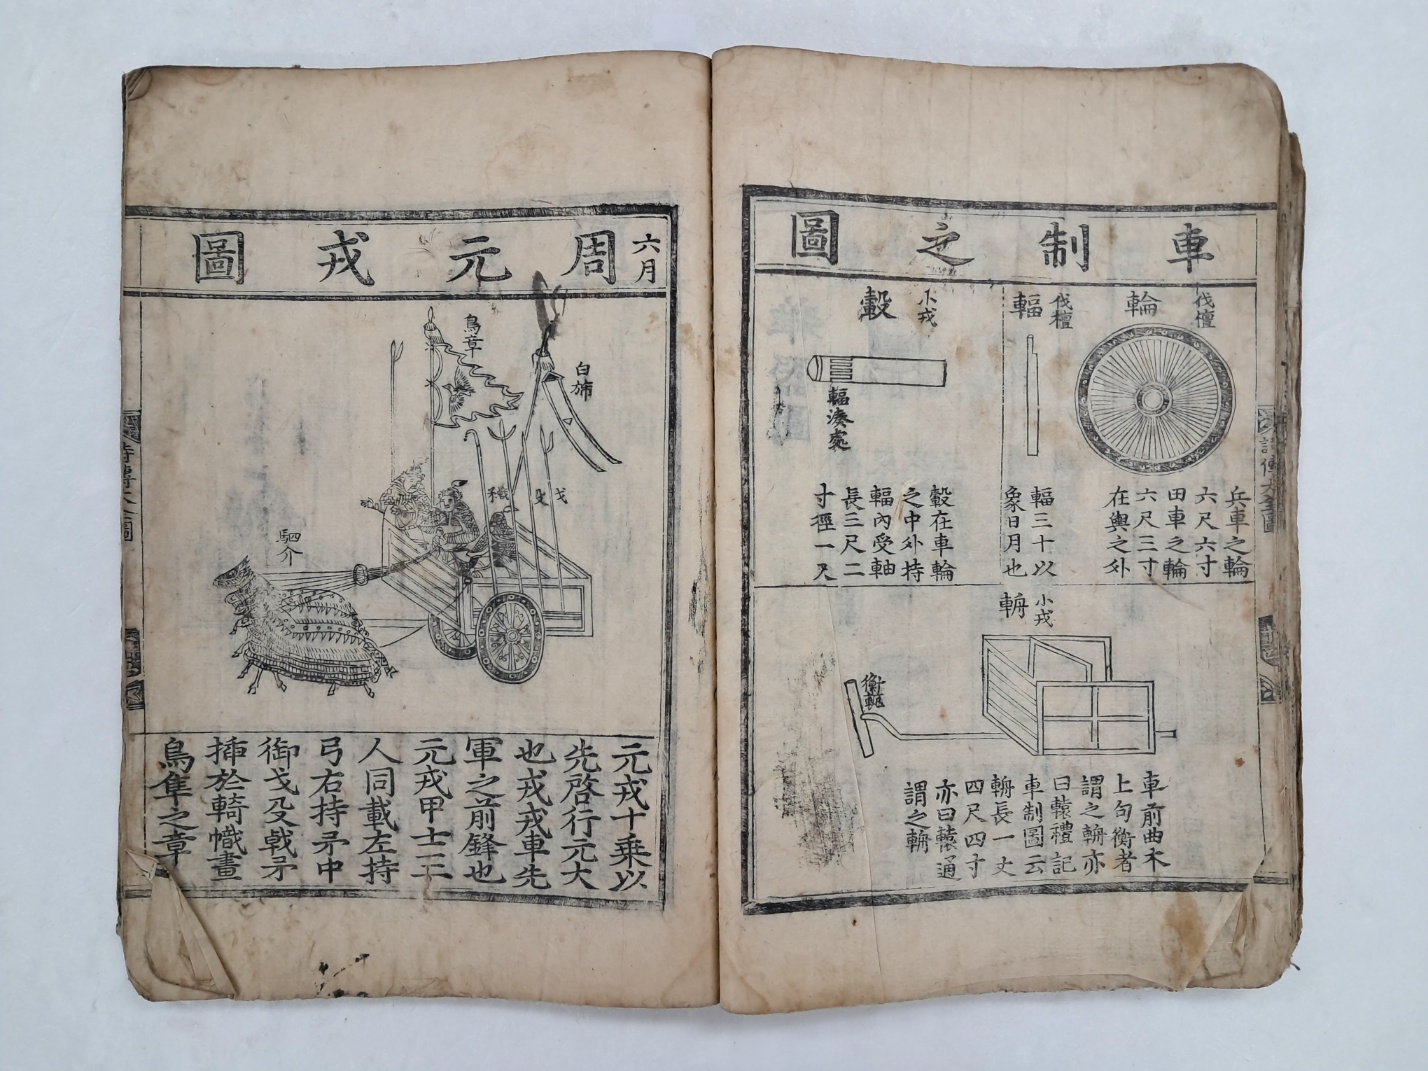 車制之圖
伐檀
輪
兵車之輪
六尺六寸
田車之輪
六尺三寸
在輿之外
伐檀
輻
輻三十以
象日月也
小戎
轂
輻湊處
轂在車輪
之中外持
輻內受軸
長三尺二
寸徑一尺
小戎
輈
衡
軏
車前曲木
上句衡者
謂之輈亦
曰轅禮記
車制圖云
輈長一丈
四尺四寸
亦曰轅通
謂之輈
六月
周元戎圖
鳥章
白斾
戈
殳
駟介
元戎十乗以
先啓行元大
也戎戎車先
軍之前鋒也
元戎甲士三
人同載左持
弓右持矛中
御戈殳戟矛
揷於輢幟畫
鳥隼之章